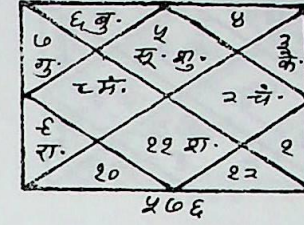 ६ बु.
४
५
सू. शु.
७
गु.
३
के.
८ मं.
२ चं.
९
रा.
११ श.
१
१०
१२
५७६